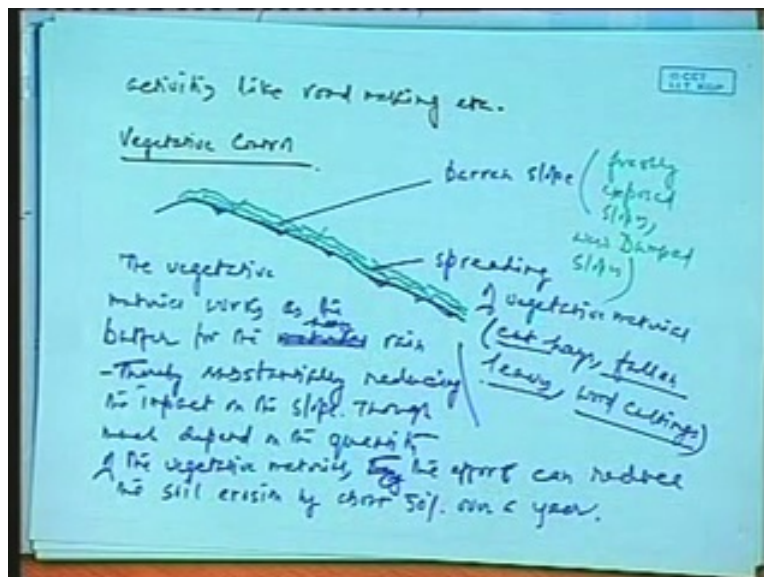 activity like road making etc.
Vegetative Control
barren slope
(freshly
exposed
slopes,
new Dumped
slopes)
spreading
of vegetative material
(cut hays, fallen
leaves, wood cuttings)
The vegetative
material works as the
buffer for the heavy rain
- Thereby substantially reducing
the impact on the slope. Though
much depend on the quantity
of the vegetative material, the effort can reduce
the soil erosion by about 50% over a year.